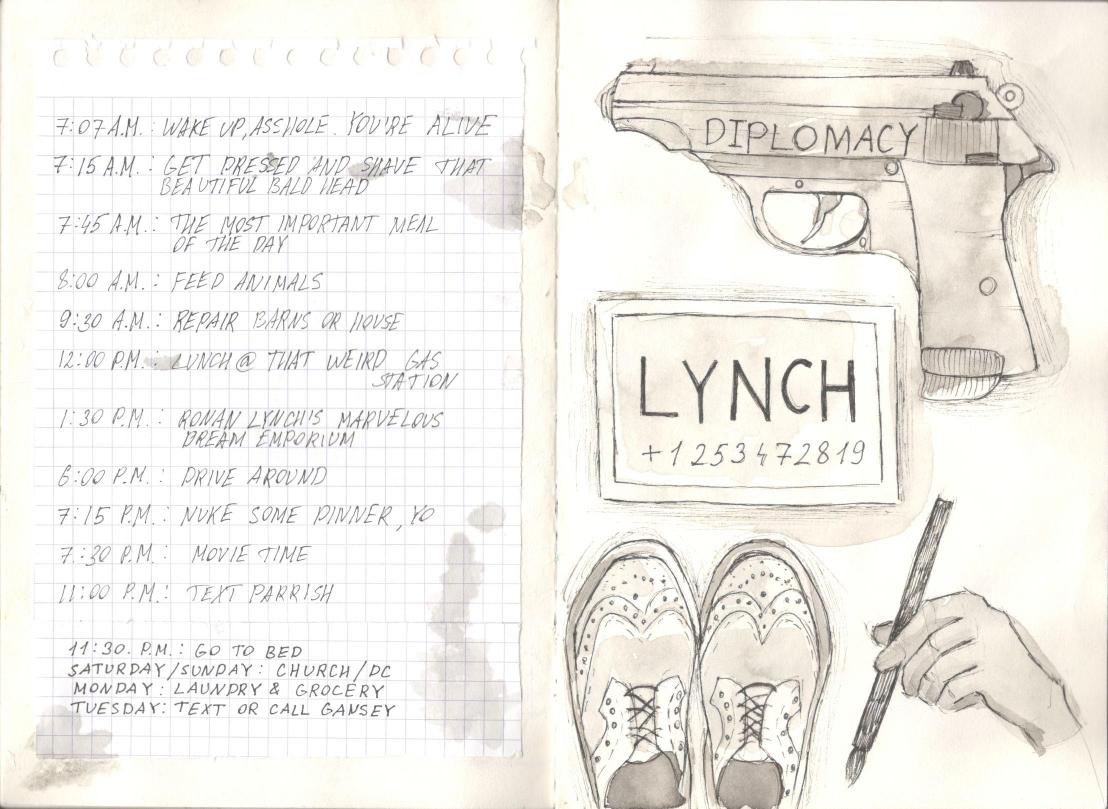 7:07 A.M.: WAKE UP, ASSHOLE. YOU'RE ALIVE
7:15 A.M.: GET DRESSED AND SHAVE THAT
BEAUTIFUL BALD HEAD
7:45 A.M.: THE MOST IMPORTANT MEAL
OF THE DAY
8:00 A.M.: FEED ANIMALS
9:30 A.M.: REPAIR BARNS OR HOUSE
12:00 P.M.: LUNCH @ THAT WEIRD GAS
STATION
1:30 P.M.: RONAN LYNCH'S MARVELOUS
DREAM EMPORIUM
6:00 P.M.: DRIVE AROUND
7:15 P.M.: NUKE SOME DINNER, YO
7:30 P.M.: MOVIE TIME
11:00 P.M.: TEXT PARRISH
11:30. P.M.: GO TO BED
SATURDAY/SUNDAY: CHURCH/DC
MONDAY: LAUNDRY & GROCERY
TUESDAY: TEXT OR CALL GANSEY
DIPLOMACY
LYNCH
+1 253472819